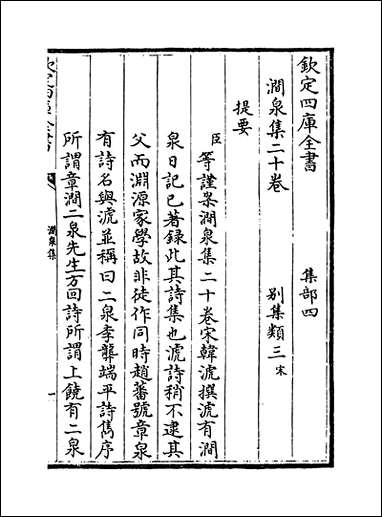 欽定四庫全書　集部四
澗泉集二十卷　別集類三宋
提要
臣等謹案澗泉集二十卷宋韓淲撰淲有澗
泉日記已著録此其詩集也淲詩稍不逮其
父而淵源家學故非徒作同時趙蕃號章泉
有詩名與淲並稱曰二泉李龏端平詩雋序
所謂章澗二泉先生方回詩所謂上饒有二泉
澗泉集
一